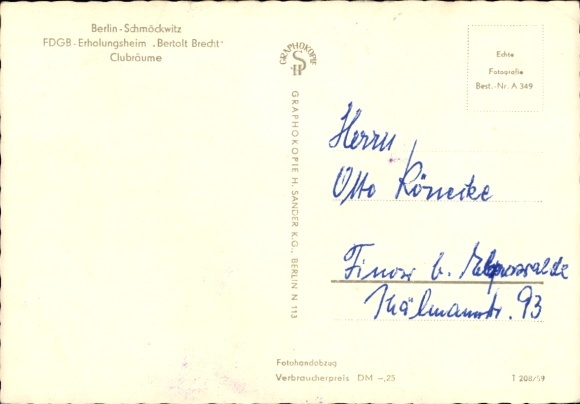 Berlin-Schmöckwitz
FDGB-Erholungsheim „Bertolt Brecht"
Clubräume
GRAPHOKOPIE
H S
GRAPHOKOPIE H. SANDER K.G., BERLIN N 113
Echte
Fotografie
Best.-Nr. A 349
Herrn
Otto Könecke
Finow b. Eberswalde
Thälmannstr. 93
Fotohandabzug
Verbraucherpreis DM -,25
T 208/59